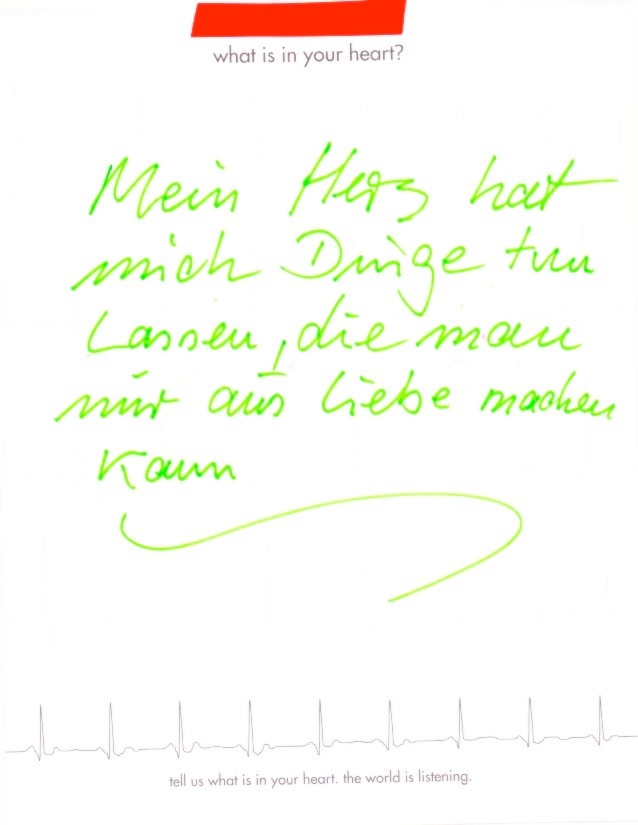 what is in your heart?
Mein Herz hat
mich Dinge tun
Lassen, die man
nur aus Liebe machen
Kann
tell us what is in your heart. the world is listening.